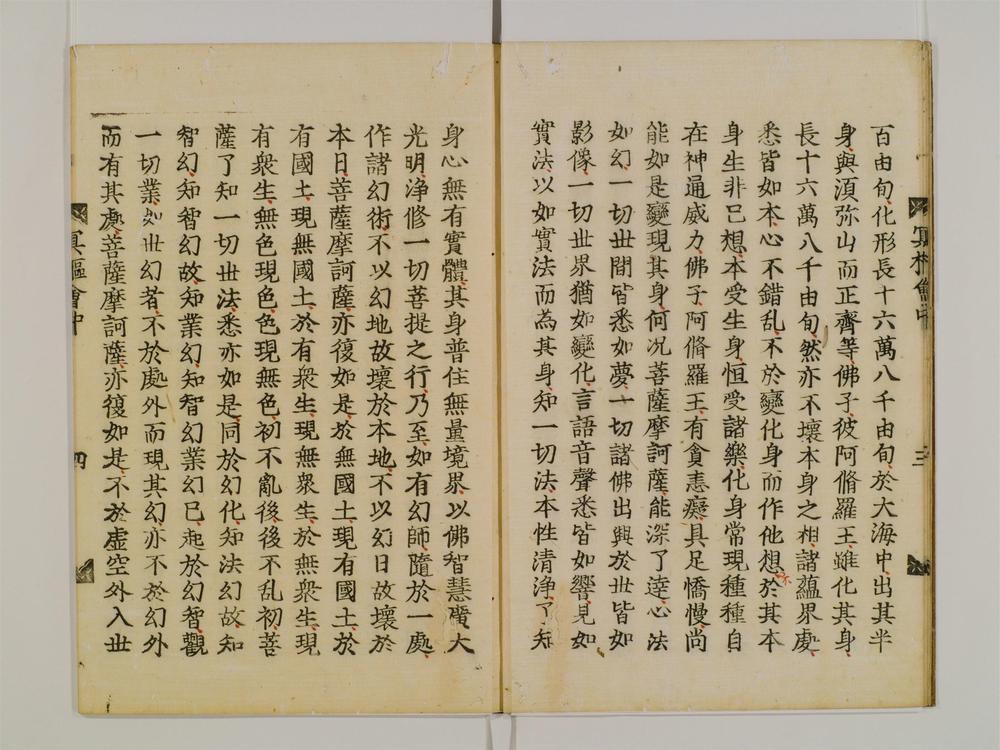 百由旬化形長十六萬八千由旬於大海中出其半
身與湏弥山而正齊等佛子彼阿脩羅王雖化其身
長十六萬八千由旬然亦不壞本身之相諸蘊界處
悉皆如本心不錯乱不於變化身而作他想於其本
身生非已想本受生身恒受諸樂化身常現種種自
在神通威力佛子阿脩羅王有貪恚癡具足憍慢尚
能如是變現其身何况菩薩摩訶薩能深了逹心法
如幻一切世間皆悉如夢一切諸佛出興於世皆如
影像一切世界猶如變化言語音聲悉皆如響見如
實法以如實法而為其身知一切法本性清淨了知
三
身心無有實體其身普住無量境界以佛智慧廣大
光明淨修一切菩提之行乃至如有幻師隨於一處
作諸幻術不以幻地故壞於本地不以幻日故壞於
本日菩薩摩訶薩亦復如是於無國土現有國土於
有國土現無國土於有衆生現無衆生於無衆生現
有衆生無色現色色現無色初不亂後後不乱初菩
薩了知一切世法悉亦如是同於幻化知法幻故知
智幻知智幻故知業幻知智幻業幻已起於幻智觀
一切業如世幻者不於處外而現其幻亦不於幻外
而有其處菩薩摩訶薩亦復如是不於虚空外入世
冥樞會中
四